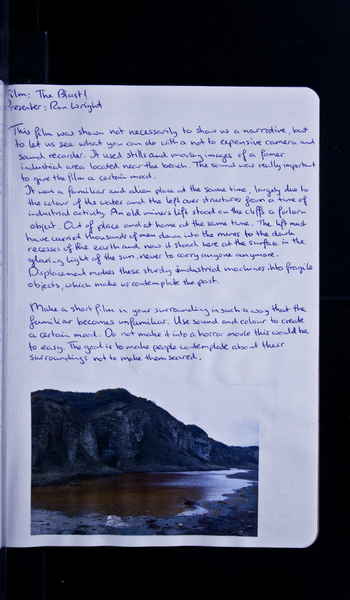 Film: The Blast!
Presenter: Ron Wright
This film was shown not necessarily to show us a narrative, but
to let us see what you can do with a not to expensive camera and
sound recorder. It used stills and moving images of a former
industrial area located near the beach. The sound was really important
to give the film a certain mood.
It was a familiar and alien place at the same time, largely due to
the colour of the water and the left over structures from a time of
industrial activity. An old miners lift stood on the cliffs a forlorn
object. Out of place and at home at the same time. The lift must
have carried thousands of men down into the mines to the dark
recesses of the earth and now it stood here at the surface in the
glaring light of the sun, never to carry anyone anymore.
Displacement makes these sturdy industrial machines into fragile
objects, which make us contemplate the past.
Make a short film in your surrounding in such a way that the
familiar becomes unfamiliar. Use sound and colour to create
a certain mood. Do not make it into a horror movie this would be
to easy. The goal is to make people contemplate about their
surroundings not to make them scared.